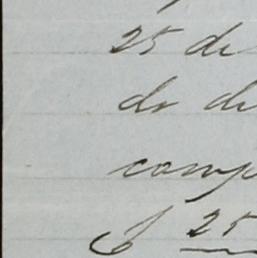 25 de
do di
comp
$ 25